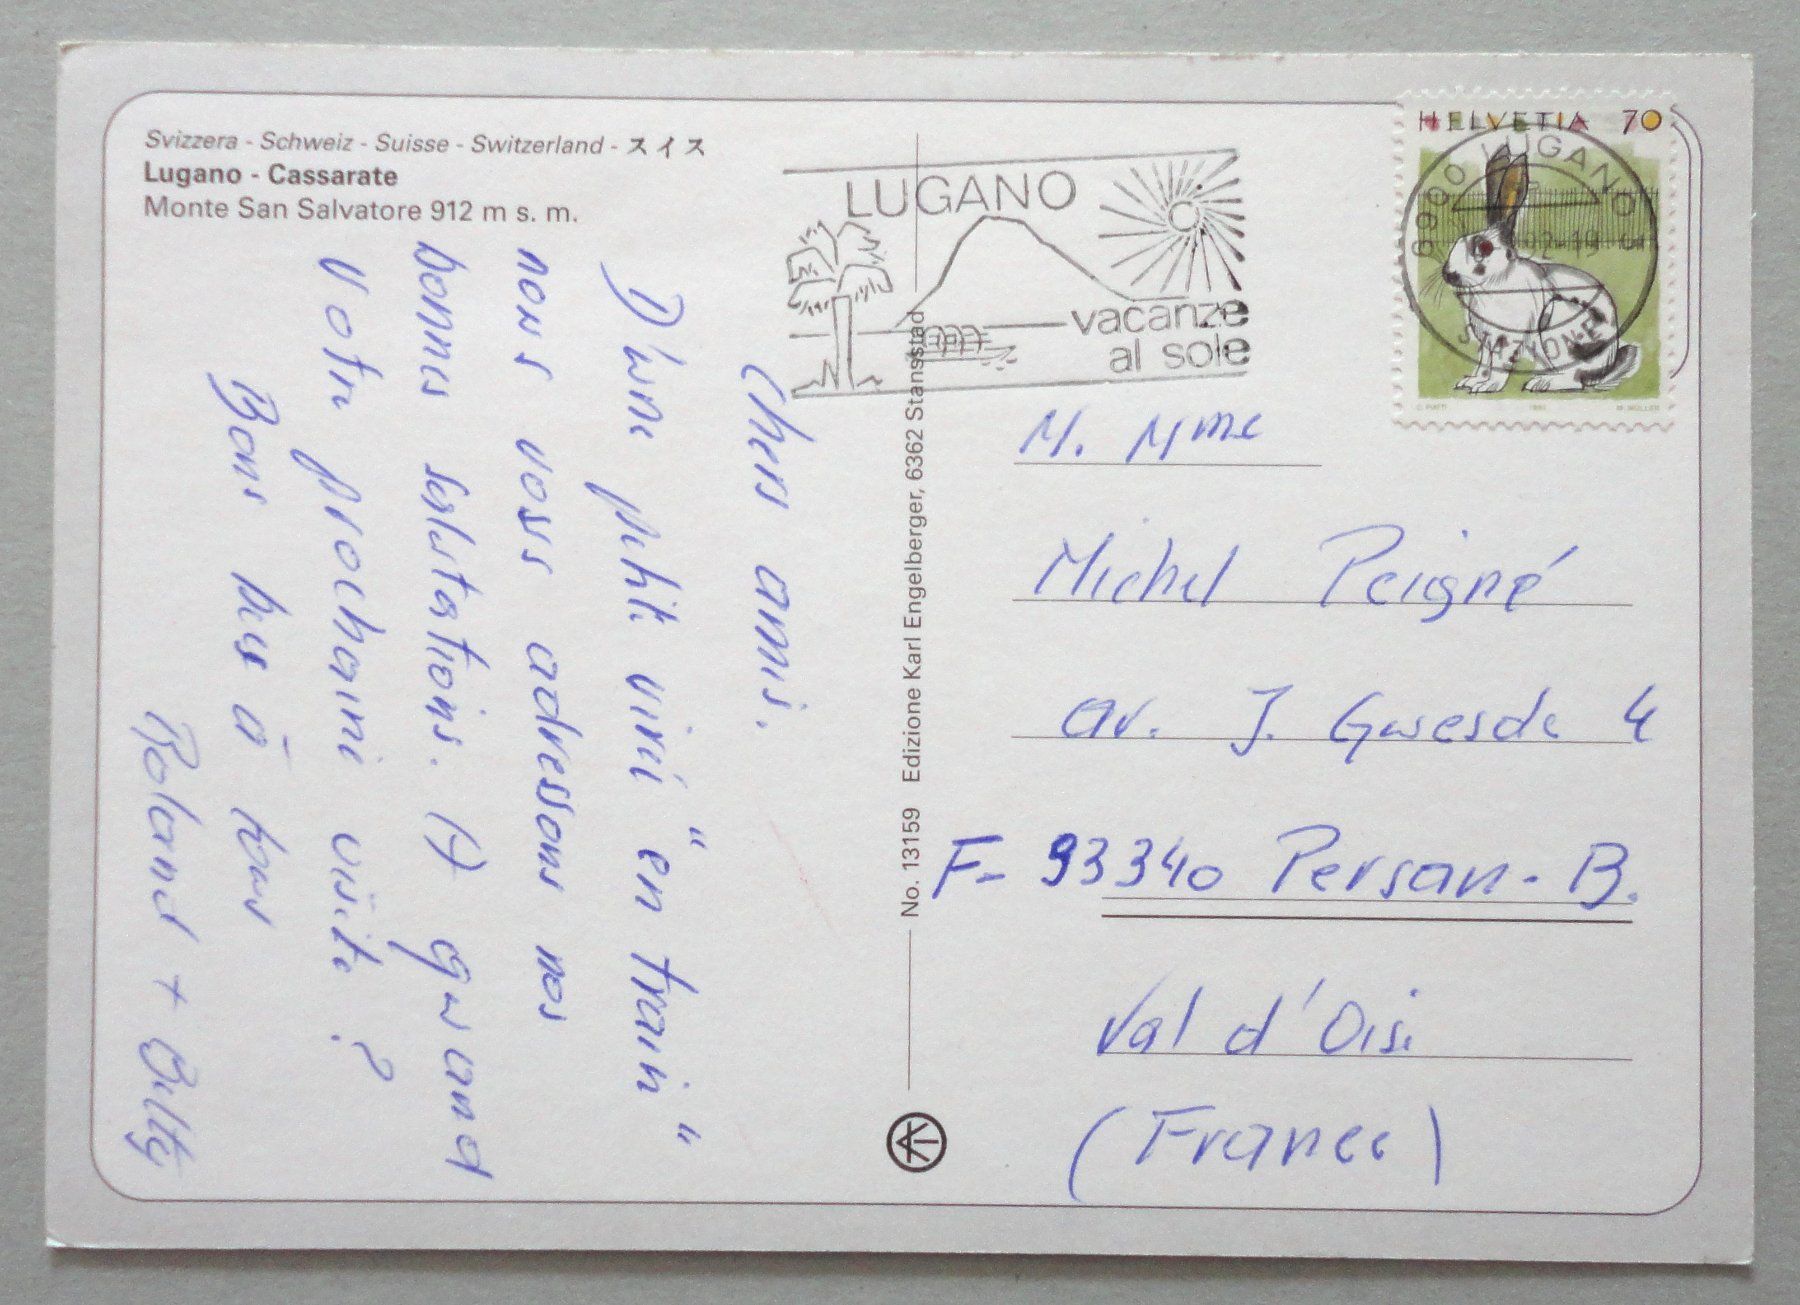 Svizzera - Schweiz - Suisse - Switzerland - スイス
Lugano - Cassarate
Monte San Salvatore 912 m s. m.
Chers amis.
D'une petite virée "en train"
nous vous adressons nos
bonnes salutations. A quand
votre prochaine visite?
Bons bus à tous
Roland +
No. 13159 Edizione Karl Engelberger, 6362 Stansstad
LUGANO
vacanze
al sole
HELVETIA 70
6900 LUGANO
STAZIONE
M. Mme
Michel Peigné
av. J. Guesde 4
F- 93340 Persan-B.
Val d'Oise
(France)